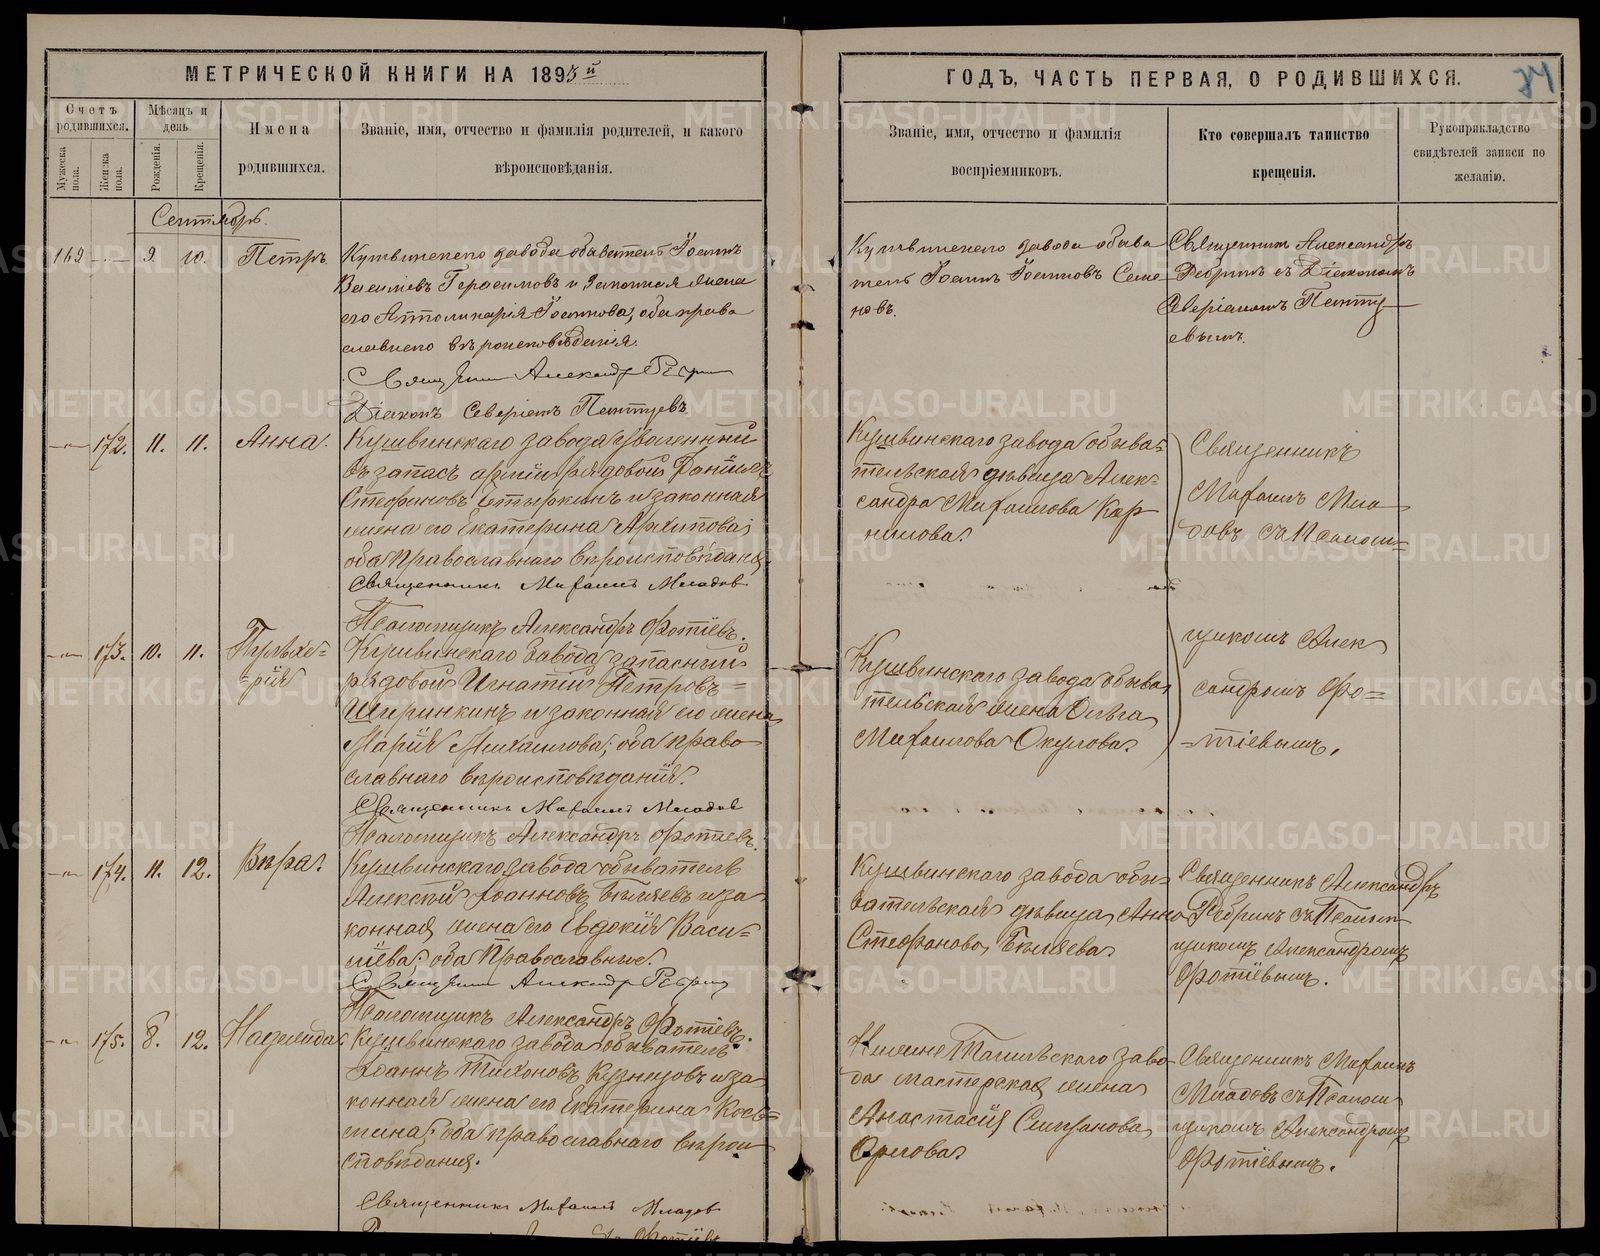 МЕТРИЧЕСКОЙ КНИГИ НА 1895й
ГОДЪ, ЧАСТЬ ПЕРВАЯ, О РОДИВШИХСЯ.
Счетъ родившихся.
Мужеска пола.
Женска пола.
Мѣсяцъ и день.
Рожденія.
Крещенія.
Имена
родившихся.
Званіе, имя, отчество и фамилія родителей, и какого
вѣроисповѣданія.
Званіе, имя, отчество и фамилія
воспріемниковъ.
Кто совершалъ таинство
крещенія.
Рукоприкладство
свидѣтелей записи по
желанію.
Сентябрь.
9. 10. Петръ.
Кушвинскаго завода обыватель Іоаннъ
Василіевъ Герасимовъ и законная жена
его Апполинарія Іоаннова, оба право
славнаго вѣроисповѣданія.
Священникъ Александръ Ребринъ
Діаконъ Северіанъ Пентуевъ
Кушвинскаго завода обыва
тель Іоаннъ Іоанновъ Семе
новъ.
Священникъ Александръ
Ребринъ съ Діакономъ
Северіаномъ Пенту
евымъ.
172. 11. 11. Анна.
Кушвинскаго завода уволенный
въ запасъ арміи рядовой
Стефановъ и законная
жена его Екатерина Архипова;
оба православнаго вѣроисповѣданія.
Священникъ Михаилъ Младовъ
Псаломщикъ Александръ Фотіевъ.
Кушвинскаго завода обыва=
тельская дѣвица Алек=
сандра Михаилова Кор
нилова.
Священникъ
Михаилъ Мла
довъ съ Псалом=
173. 10. 11. Пульхе=
=рія
Кушвинскаго завода запасный
рядовой Игнатій Петровъ=
Ширинкинъ и законная его жена
Марія Михаилова; оба право
славнаго вѣроисповѣданія.
Священникъ Михаилъ Младовъ
Псаломщикъ Александръ Фотіевъ.
Кушвинскаго завода обыва
тельская жена Ольга
Михаилова Окулова.
щикомъ Алек
сандромъ Фо=
=тіевымъ.
174. 11. 12. Вѣра.
Кушвинскаго завода обыватель
Алексій Іоанновъ Бѣляевъ и за
конная жена его Евдокія Васи=
ліева; оба Православные.
Священникъ Александръ Ребринъ
Псаломщикъ Александръ Фотіевъ.
Кушвинскаго завода обы=
вательская дѣвица Анна
Стефанова Бѣляева.
Священникъ Александръ
Ребринъ съ Псалом
щикомъ Александромъ
Фотіевымъ.
175. 8. 12. Надежда.
Кушвинскаго завода обыватель
Іоаннъ Тихоновъ Кузнецовъ и за
конная жена его Екатерина Кось=
мина; оба православнаго вѣрои
сповѣданія.
Священникъ Михаилъ Младовъ
Нижне Тагильскаго заво
да мастерская жена
Анастасія
Орлова.
Священникъ Михаилъ
Младовъ съ Псалом
щикомъ Александромъ
Фотіевымъ.
METRIKI.GASO-URAL.RU